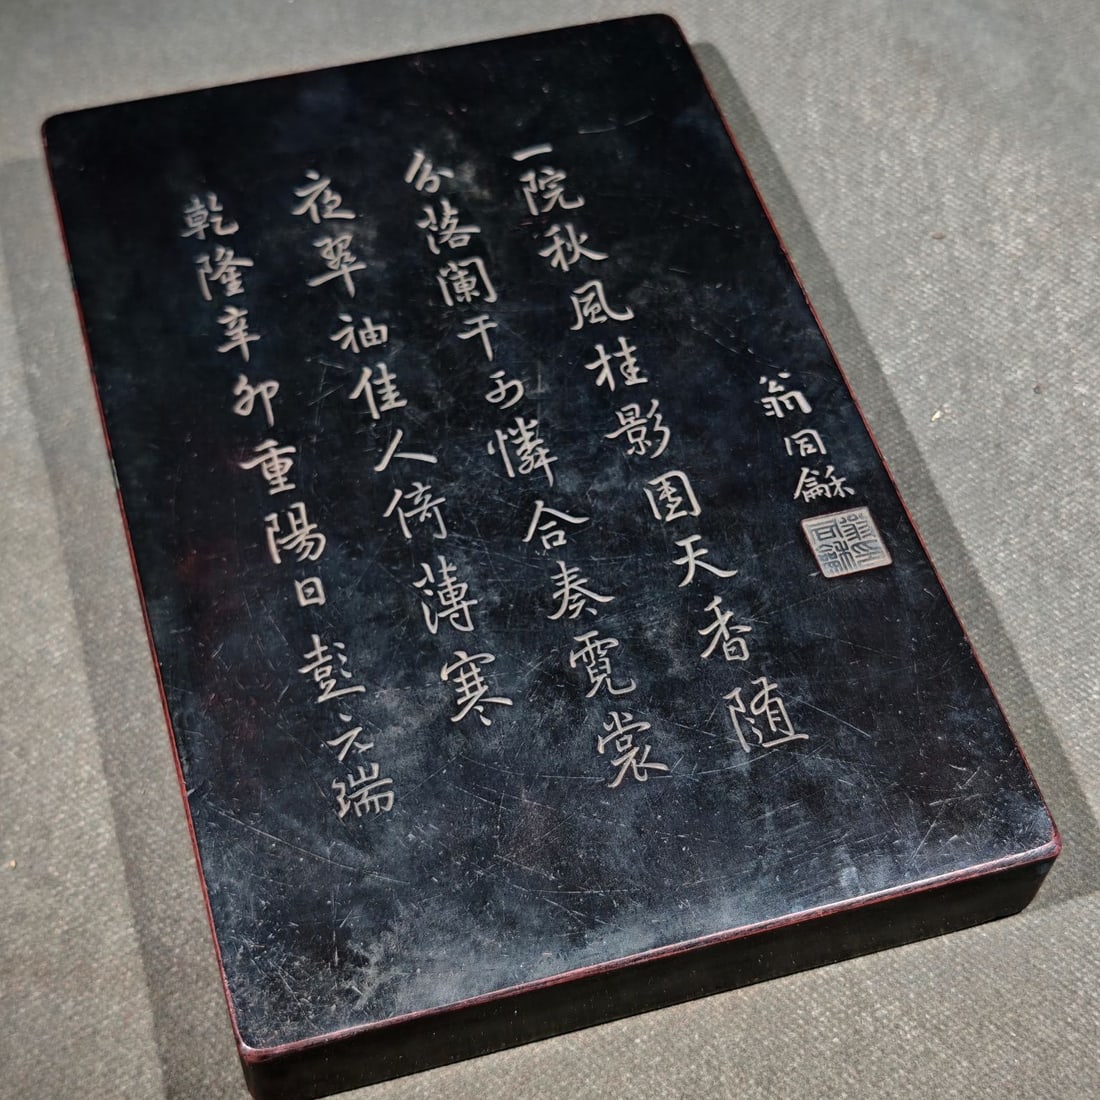 翁同龢
一院秋風桂影團天香随
分落闌干可憐合奏霓裳
夜翠袖佳人倚薄寒
乾隆辛卯重陽日彭元瑞